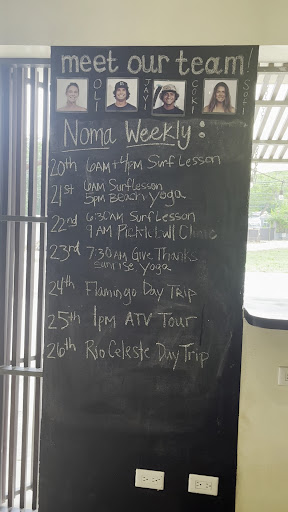 meet our team!
OLI
JAVI
COKI
SOFI
Noma Weekly:
20th 6AM + 4PM Surf Lesson
21st 6AM Surf Lesson
5PM Beach Yoga
22nd 6:30AM Surf Lesson
9AM Pickleball Clinic
23rd 7:30AM Give Thanks
Sunrise Yoga
24th Flamingo Day Trip
25th 1PM ATV Tour
26th Rio Celeste Day Trip